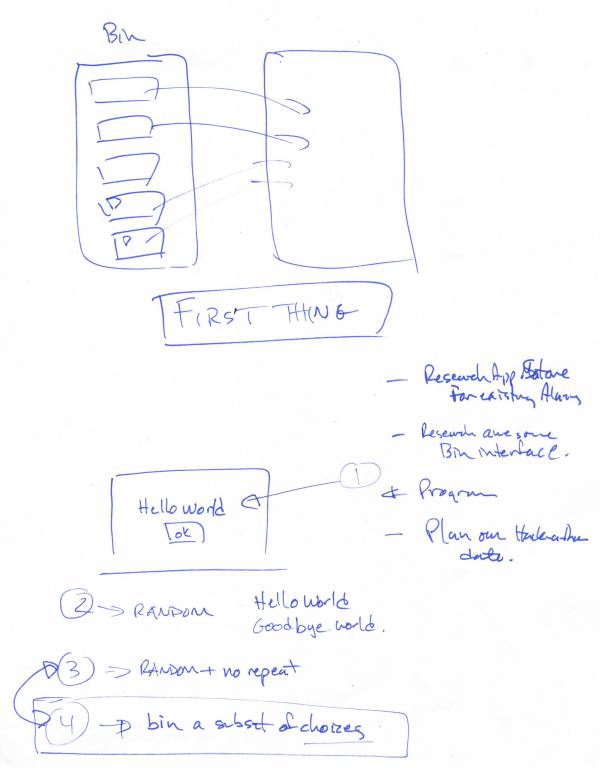 Bin
FIRST THING
- Research App Store
For existing Alarms
- Research awesome
Bin interface.
1
Program
- Plan our Hackathon
date.
Hello world
ok
2 → RANDOM Hello World
Goodbye world.
3 ⇒ RANDOM + no repeat
4 → bin a subset of choices